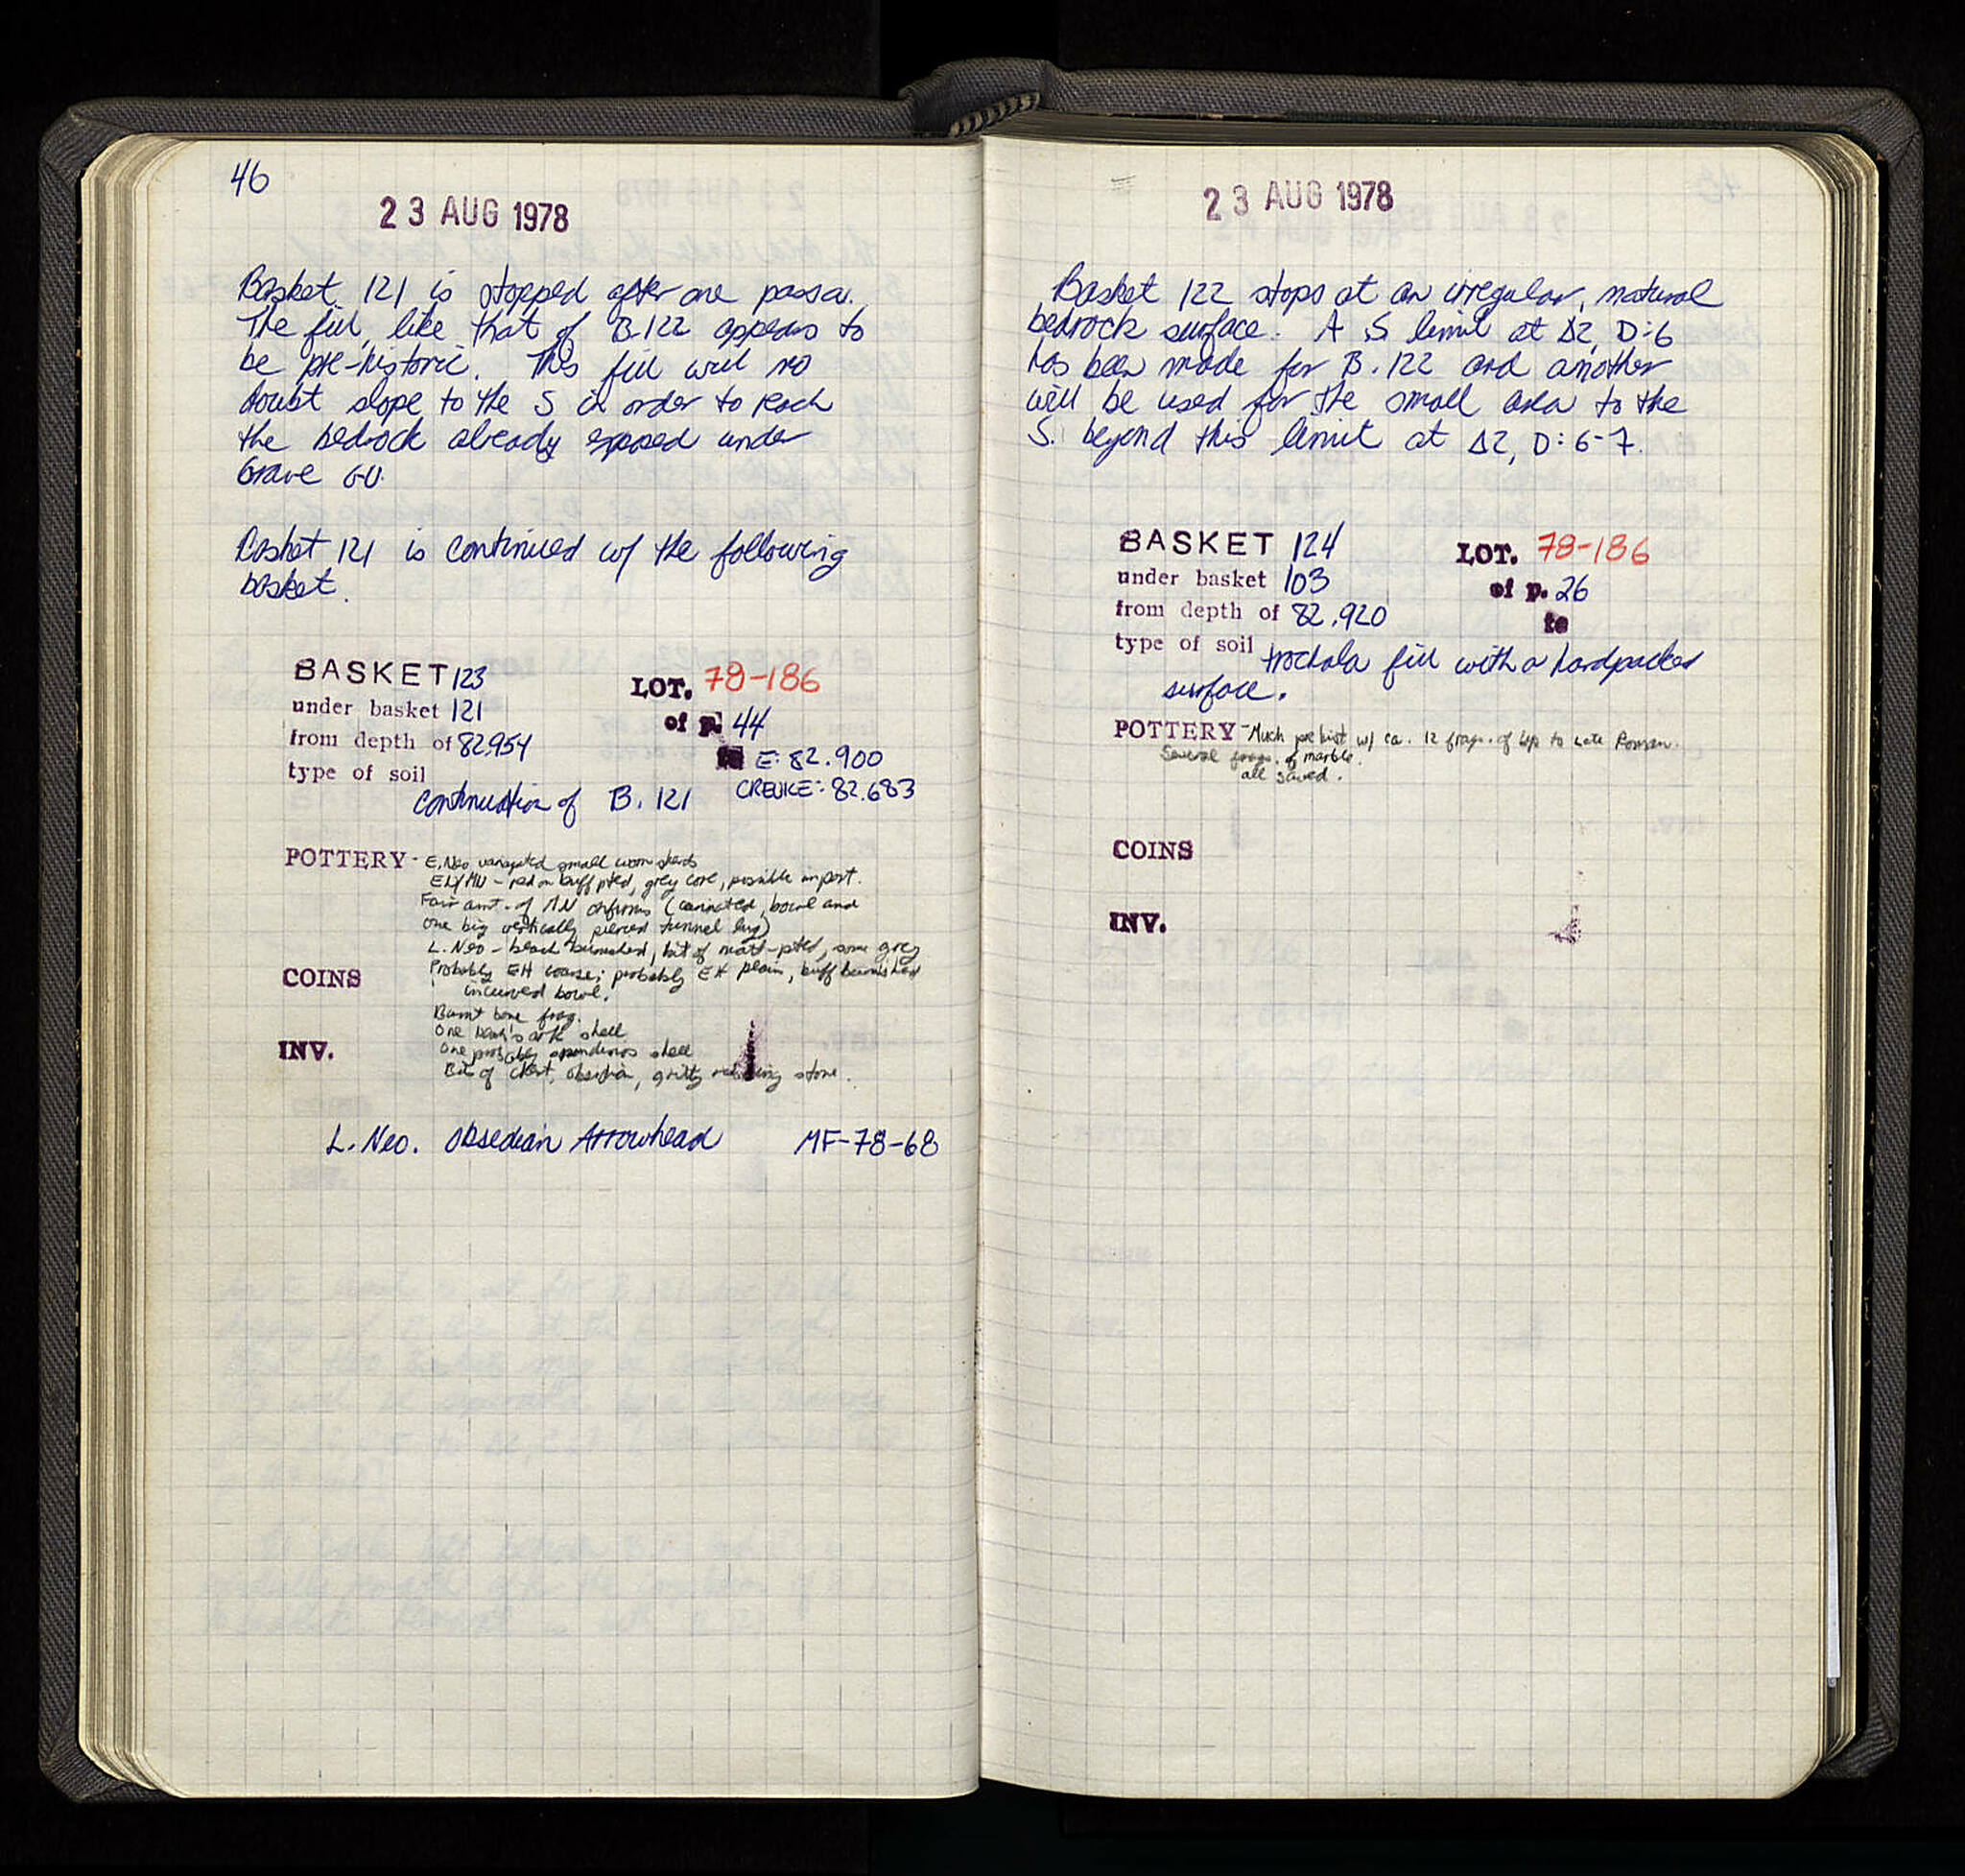 46
23 AUG 1978
Basket 121 is stopped after one passa.
The fill, like that of B.122 appears to
be pre-historic. This fill will no
doubt slope to the S in order to reach
the bedrock already exposed under
Grave
Basket 121 is continued w/ the following
basket.
BASKET 123
LOT. 78-186
under basket 121
of p. 44
from depth of 82.954
to E: 82.900
type of soil
continuation of B. 121
CREVICE: 82.683
POTTERY - E. Neo variegated small worn sherds
EN/MN - red on buff pted, grey core, possible import.
Fair amt. of MN (carinated bowl and
one big vertically pierced tunnel lug)
L. Neo - black burnished, bit of matt-pted, some grey
COINS
Probably EH coarse; probably EH plain, buff burnished
incurved bowl.
Burnt bone frag.
One Noah's ark shell
INV.
One probably shell
Bits of chert, obsidian, gritty stone.
L. Neo. Obsedian Arrowhead MF-78-68
23 AUG 1978
Basket 122 stops at an irregular, natural
bedrock surface. A S limit at Δ2, D:6
has been made for B.122 and another
will be used for the small area to the
S. beyond this limit at Δ2, D:6-7.
BASKET 124
LOT. 78-186
under basket 103
of p. 26
from depth of 82.920
to
type of soil trochala fill with a hardpacked
surface.
POTTERY - Much pre hist w/ ca. 12 frags. of up to Late Roman.
Several frags. of marble.
all saved.
COINS
INV.